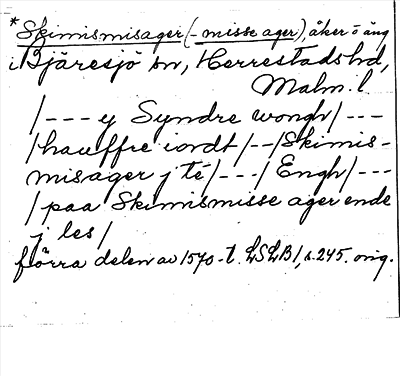 *Skimismisager (- misse ager), åker o äng
i Bjäresjö sn, Herrestads hd,
Malm. l.
/--- y Syndre wongh /---
/hauffre iordt /--/ Skimis-
misager j té /---/ Engh /---
/ paa Skimismisse ager ende
j les /
förra delen av 1570-t. LSLB 1, s. 245. orig.